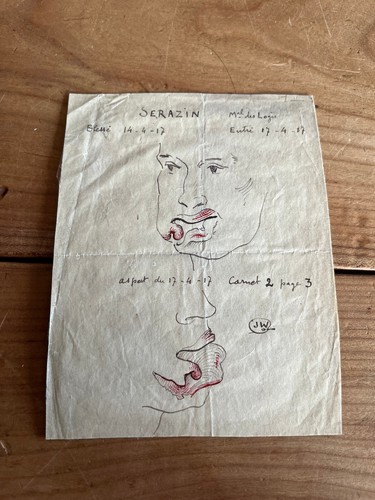 SERAZIN Mal des Logis
Blessé 14-4-17 Entré 17-4-17
aspect du 17-4-17 Carnet 2 page 3
JW